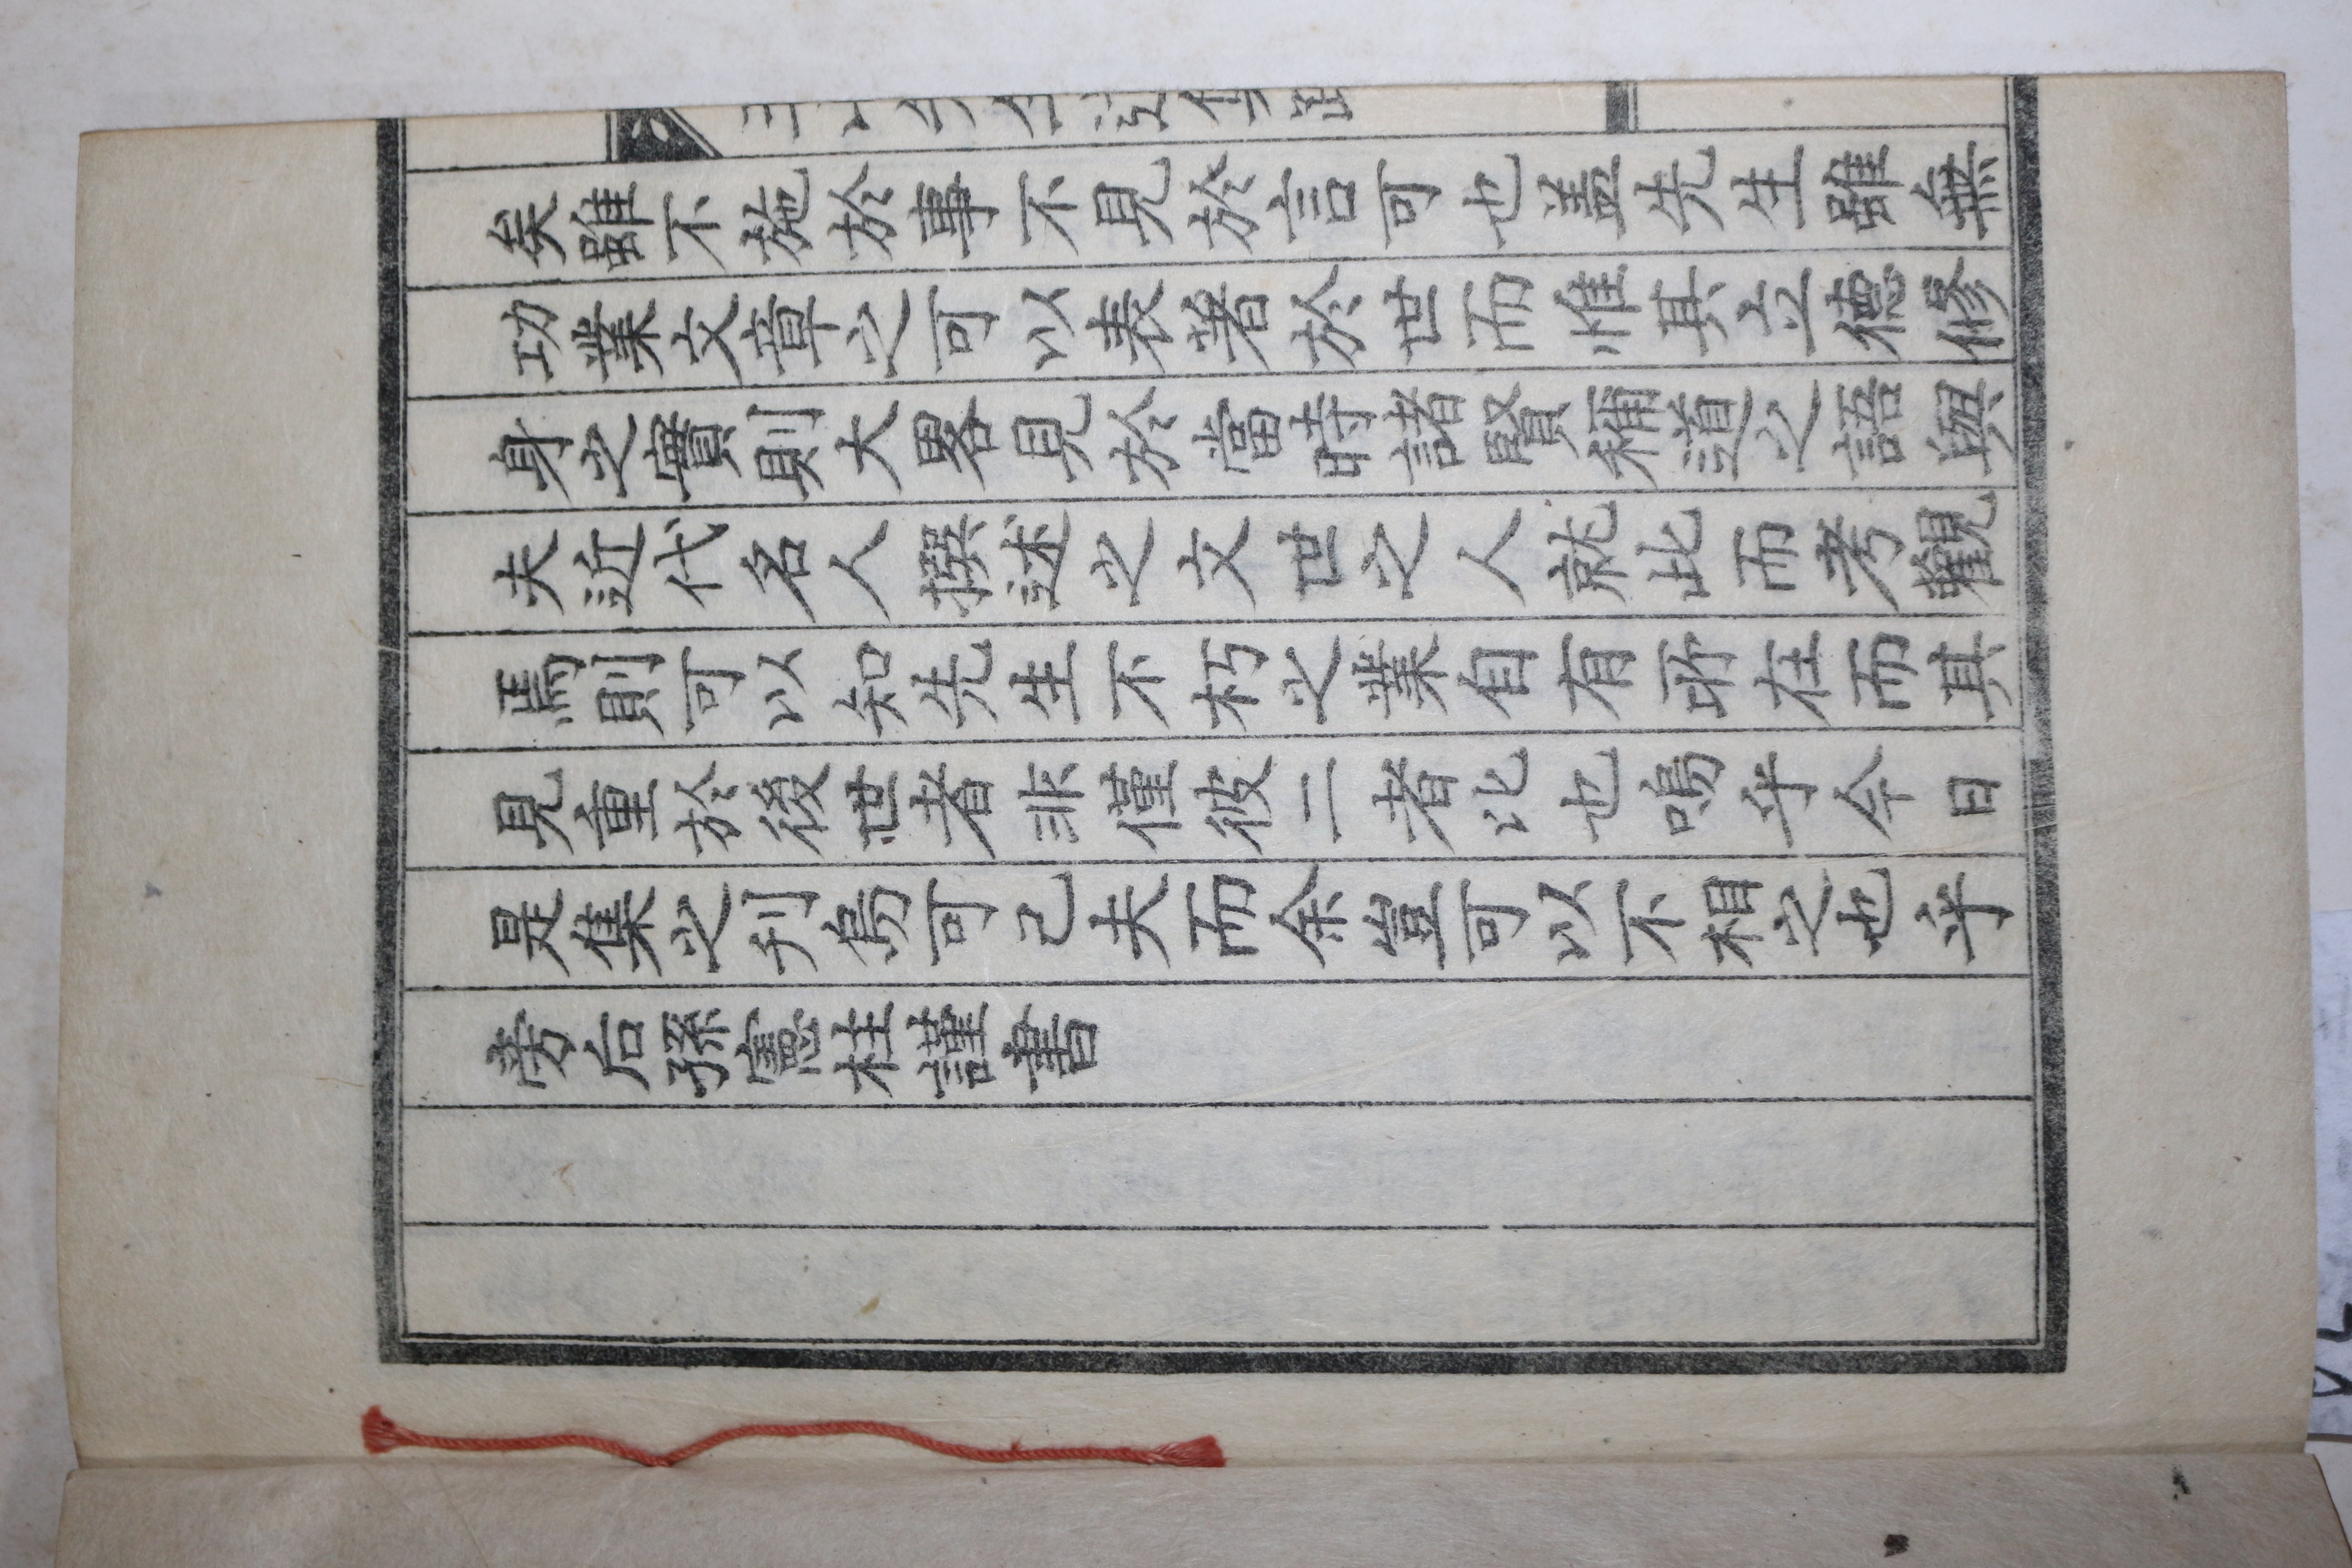 矣雖不施於事不見於言可也盖先生雖無
功業文章之可以表著於世而惟其立德修
身之實則大畧見於當時諸賢稱道之語與
夫近代名人撰述之文世之人就此而考觀
焉則可以知先生不朽之業自有所在而其
見重於後世者非僅彼二者比也嗚乎今日
是集之刊烏可己夫而余豈可以不相之也乎
旁后孫憲柱謹書